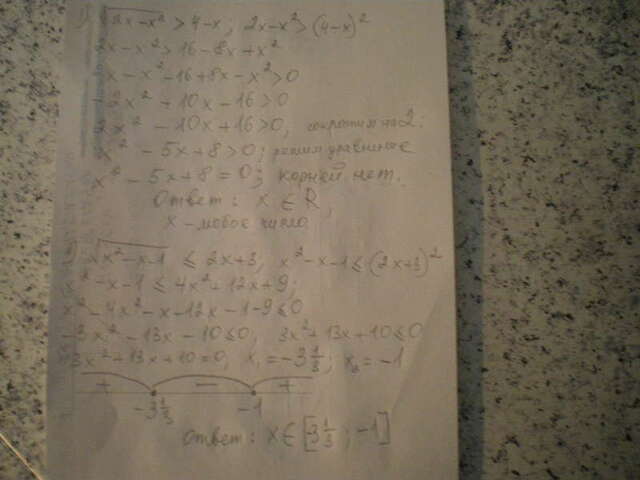 1) √2x-x² > 4-x; 2x-x² > (4-x)²
2x-x² > 16-8x+x²
2x-x²-16+8x-x² > 0
-2x²+10x-16 > 0
2x²-10x+16 > 0, сократим на 2:
x²-5x+8 > 0; решим уравнение
x²-5x+8 = 0; корней нет.
Ответ: x ∈ R,
x - любое число
√x²-x-1 ≤ 2x+3; x²-x-1 ≤ (2x+3)²
x²-x-1 ≤ 4x²+12x+9;
x²-4x²-x-12x-1-9 ≤ 0
-3x²-13x-10 ≤ 0, 3x²+13x+10 ≤ 0
3x²+13x+10 = 0, x₁ = -3 1/3; x₂ = -1
+ - +
-3 1/3 -1
Ответ: x ∈ [3 1/3; -1]